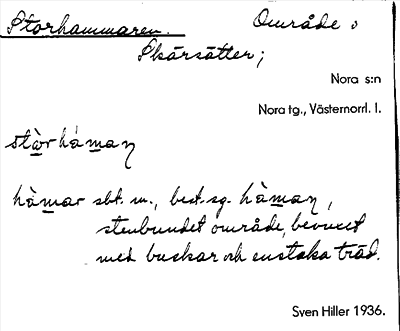 Storhammaren. Område i
Skärsätter;
Nora s:n
Nora tg., Västernorrl. l.
stòrhàmaṇ
hàmar sbt. m., best.sg. hàmaṇ,
stenbundet område, bevuxet
med buskar och enstaka träd.
Sven Hiller 1936.